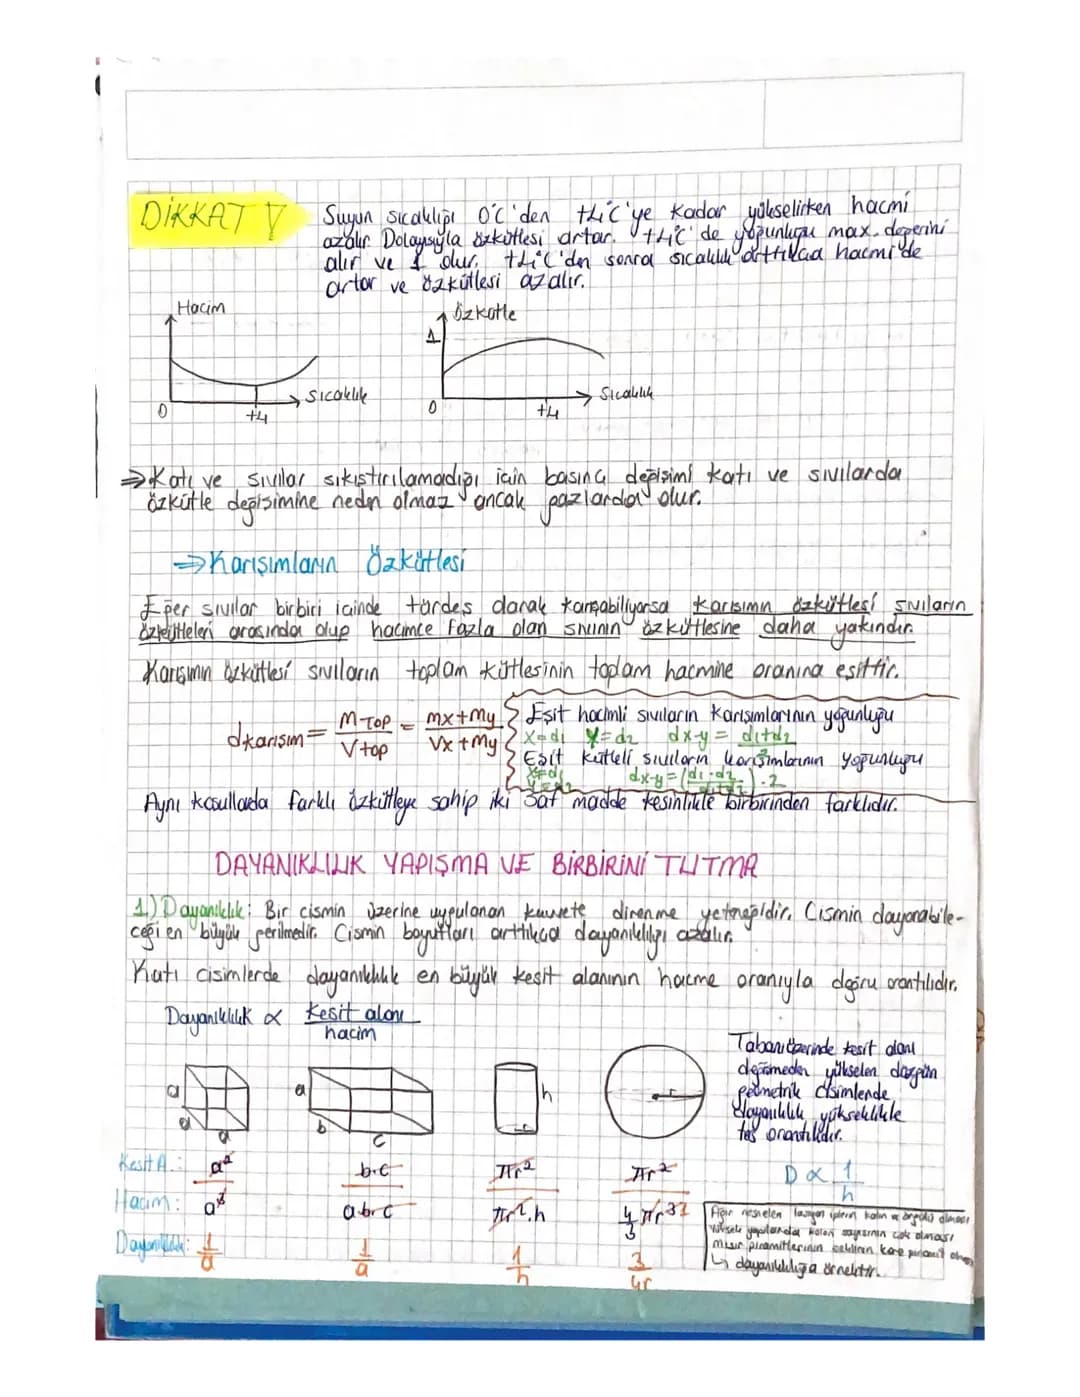 DİKKAT !
Suyun sıcaklığı 0°C'den +4°C'ye kadar yükselirken hacmi
azalır. Dolayısıyla özkütlesi artar. +4°C'de yoğunluğu max. değerini
alır ve 1 olur. +4°C'den sonra sıcaklık arttıkça hacmi de
artar ve özkütlesi azalır.
Hacim
Sıcaklık
0
+4
Özkütle
1
Sıcaklık
0
+4
⇒Katı ve sıvılar sıkıştırılamadığı için basınç değişimi katı ve sıvılarda
özkütle değişimine neden olmaz ancak gazlarda olur.
⇒Karışımların Özkütlesi
Eğer sıvılar birbiri içinde türdeş olarak karışabiliyorsa karışımın özkütlesi sıvıların
özkütleleri arasında olup hacimce fazla olan sıvının özkütlesine daha yakındır.
Karışımın özkütlesi sıvıların toplam kütlesinin toplam hacmine oranına eşittir.
dkarışım = M-TOP / Vtop = mx+my / Vx+My
Eşit hacimli sıvıların karışımlarının yoğunluğu
X=d1 Y=d2 dx-y = d1+d2
Eşit kütleli sıvıların karışımlarının yoğunluğu
X=d1
Y=d2
dx-y=(d1.d2 / d1+d2).2
Aynı koşullarda farklı özkütleye sahip iki saf madde kesinlikle birbirinden farklıdır.
DAYANIKLILIK YAPIŞMA VE BİRBİRİNİ TUTMA
1.) Dayanıklılık: Bir cismin üzerine uygulanan kuvvete direnme yeteneğidir. Cismin dayanabile-
ceği en büyük gerilmedir. Cismin boyutları arttıkça dayanıklılığı azalır.
Katı cisimlerde dayanıklılık en büyük kesit alanının hacme oranıyla doğru orantılıdır.
Dayanıklılık ∝ Kesit alanı / hacim
a
a
a
a
b
c
h
r
r
Tabanı üzerinde kesit alanı
değişmeden yükselen düzgün
geometrik cisimlerde
dayanıklılık yükseklikle
ters orantılıdır.
D ∝ 1/h
Kesit A.: a² b.c πr² πr²
Hacim: a³ a.b.c πr².h 4/3 πr³
Dayanıklılık: 1/a 1/a 1/h 3/4r
Ağır nesneleri taşıyan iplerin kalın ve örgülü olması
Yüksek yapılarda kolon sayısının çok olması
Mısır piramitlerinin şeklinin kare piramit
↳ dayanıklılığa örnektir.